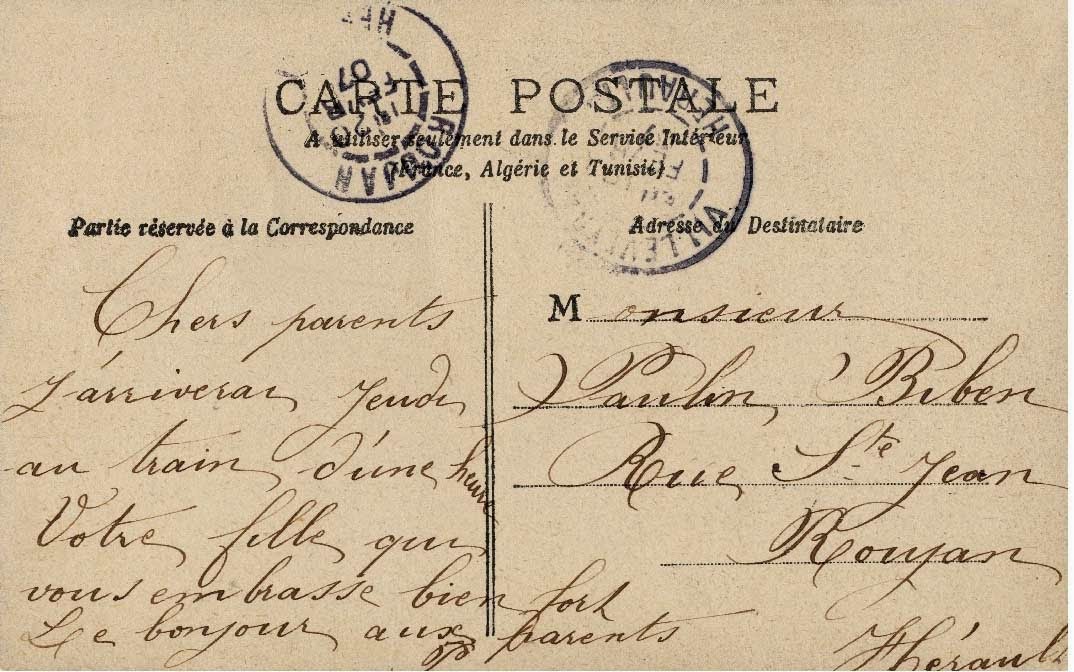 CARTE POSTALE
A utiliser seulement dans le Service Intérieur
(France, Algérie et Tunisie)
ROUJAN
07
Partie réservée à la Correspondance
Chers parents
J'arriverai Jeudi
au train d'une heure
Votre fille qui
vous embrasse bien fort
Le bonjour aux parents
Adresse du Destinataire
Monsieur
Paulin Biben
Rue Ste Jean
Roujan
Hérault